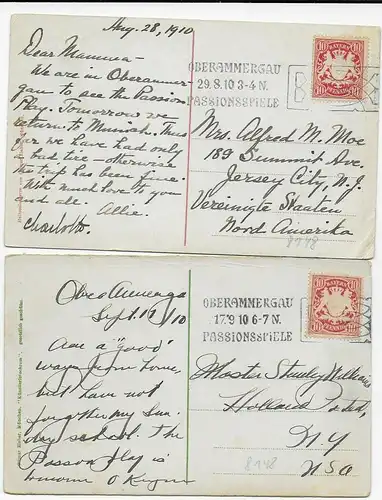 Aug. 28, 1910
Dear Mamma -
We are in Oberammer-
gau to see the Passion
Play. Tomorrow we
return to Munich. Thus
far we have had only
a bad tire - otherwise
the trip has been fine.
With much love to you
and all. Allie.
Charlotte.
OBERAMMERGAU
29. 8. 10 3-4 N.
PASSIONSSPIELE
BAYERN
10 10
PFENNIG
Mrs. Alfred M. Moe
189 Summit Ave.
Jersey City, N.J.
Vereinigte Staaten
Nord Amerika
8748
Sept. 17/10
Am a "good"
ways from home,
but have not
forgotten my Sun-
day school. The
Passion Play is
OBERAMMERGAU
17. 9 10 6-7 N.
PASSIONSSPIELE
BAYERN
10 10
PFENNIG
Master Stanley Williams
Holland Patent,
N Y
USA
8748